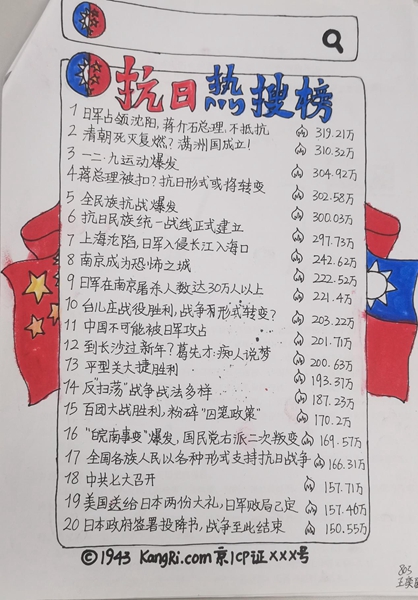 抗日热搜榜
1 日军占领沈阳,蒋介石总理,不抵抗 319.21万
2 清朝死灭复燃?满洲国成立! 310.32万
3 一二·九运动爆发 304.92万
4 蒋总理被扣?抗日形式或将转变 302.58万
5 全民族抗战爆发 300.03万
6 抗日民族统一战线正式建立 297.73万
7 上海沦陷,日军入侵长江入海口 242.62万
8 南京成为恐怖之城 222.52万
9 日军在南京屠杀人数达30万人以上 221.4万
10 台儿庄战役胜利,战争有形式转变? 203.22万
11 中国不可能被日军攻占 201.71万
12 到长沙过新年?葛先才:痴人说梦 200.63万
13 平型关大捷胜利 193.31万
14 反"扫荡"战争战法多样 187.23万
15 百团大战胜利,粉碎"囚笼政策" 170.2万
16 "皖南事变"爆发,国民党右派二次叛变 169.57万
17 全国各族人民以各种形式支持抗日战争 166.31万
18 中共七大召开 157.71万
19 美国送给日本两份大礼,日军败局已定 157.46万
20 日本政府签署投降书,战争至此结束 150.55万
©1943 KangRi.com 京ICP证XXX号
805